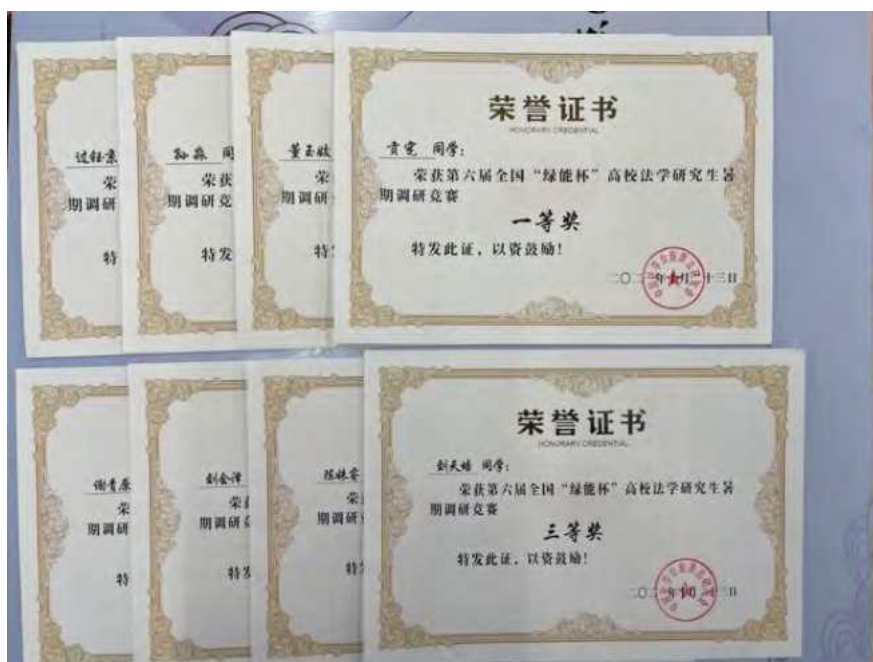 过钰素
荣
期调研
特
孙淼 同
荣获
期调研竞
特发
董玉
荣
期调研
特
荣誉证书
HONORARY CREDENTIAL
同学:
荣获第六届全国“绿能杯”高校法学研究生暑
期调研竞赛
一等奖
特发此证,以资鼓励!
谢青原
荣
期调研
特
刘会泽
荣
期调研
特发
陈姝
荣
期调研
特
荣誉证书
HONORARY CREDENTIAL
刘天培 同学:
荣获第六届全国“绿能杯”高校法学研究生暑
期调研竞赛
三等奖
特发此证,以资鼓励!